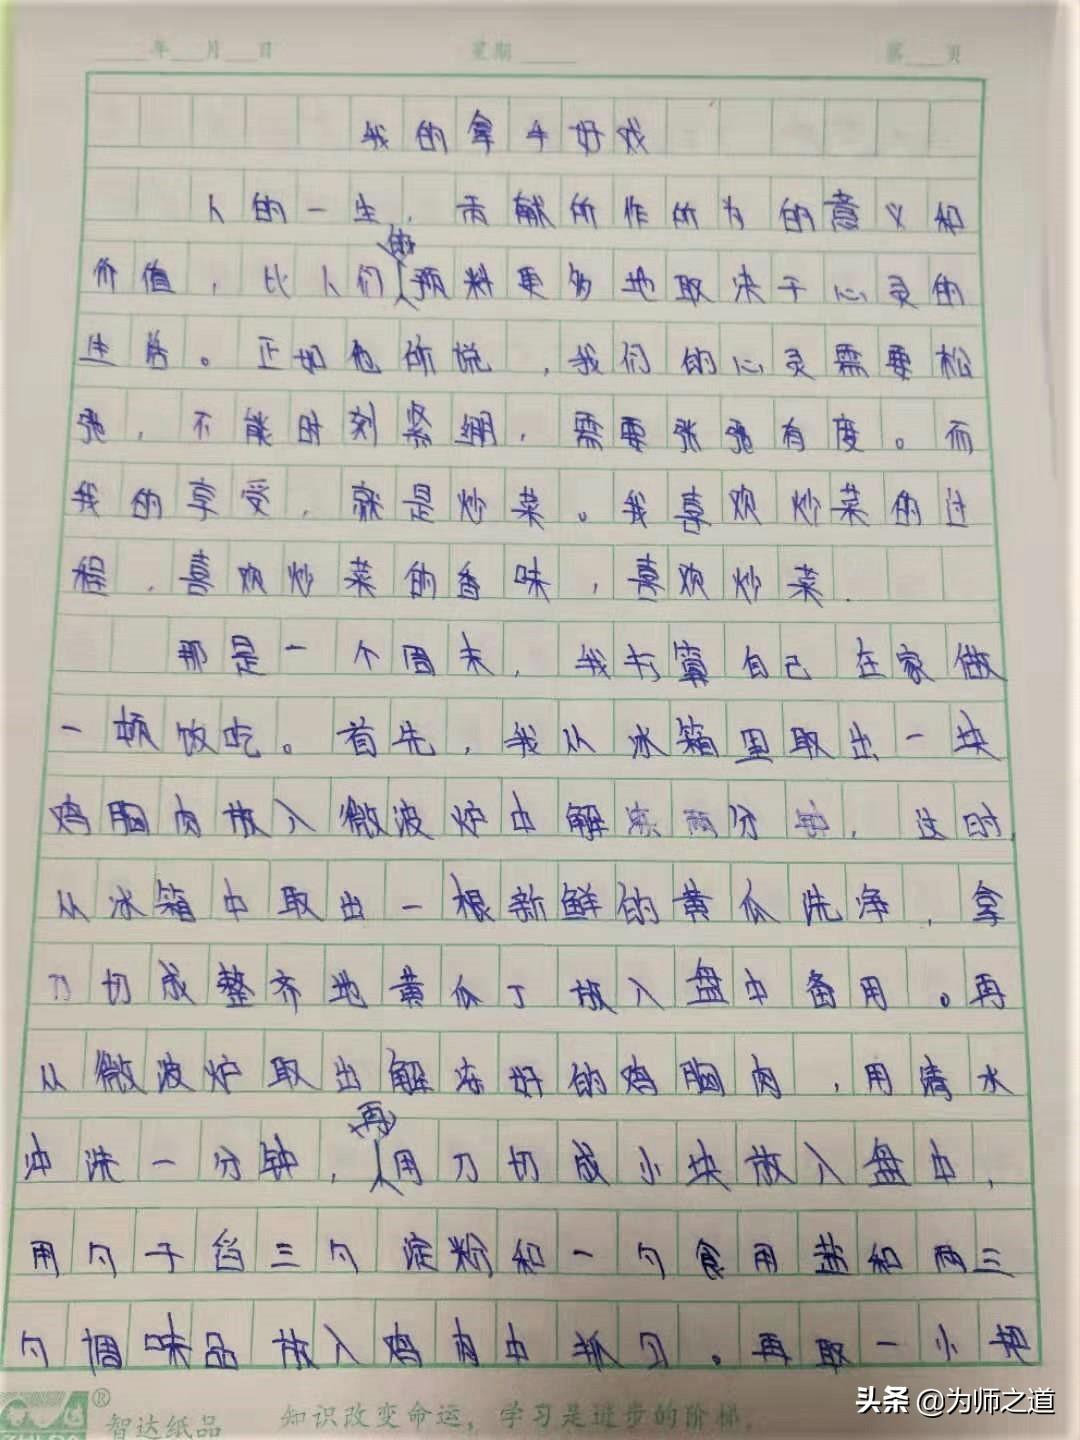 年 月 日 星期 第 页
我的拿手好戏
人的一生，贡献所作所为的意义和
价值，比人们的预料更多地取决于心灵的
生活。正如他所说，我们的心灵需要松
弛，不能时刻紧绷，需要张弛有度。而
我的享受，就是炒菜。我喜欢炒菜的过
程，喜欢炒菜的香味，喜欢炒菜．
那是一个周末，我打算自己在家做
一顿饭吃。首先，我从冰箱里取出一块
鸡胸肉放入微波炉中解冻两分钟，这时，
从冰箱中取出一根新鲜的黄瓜洗净，拿
刀切成整齐地黄瓜丁放入盘中备用。再
从微波炉取出解冻好的鸡胸肉，用清水
冲洗一分钟，再用刀切成小块放入盘中，
用勺子舀三勺淀粉和一勺食用盐和两三
勺调味品放入鸡肉中抓匀。再取一小把
智达纸品 知识改变命运，学习是进步的阶梯．
头条 @为师之道